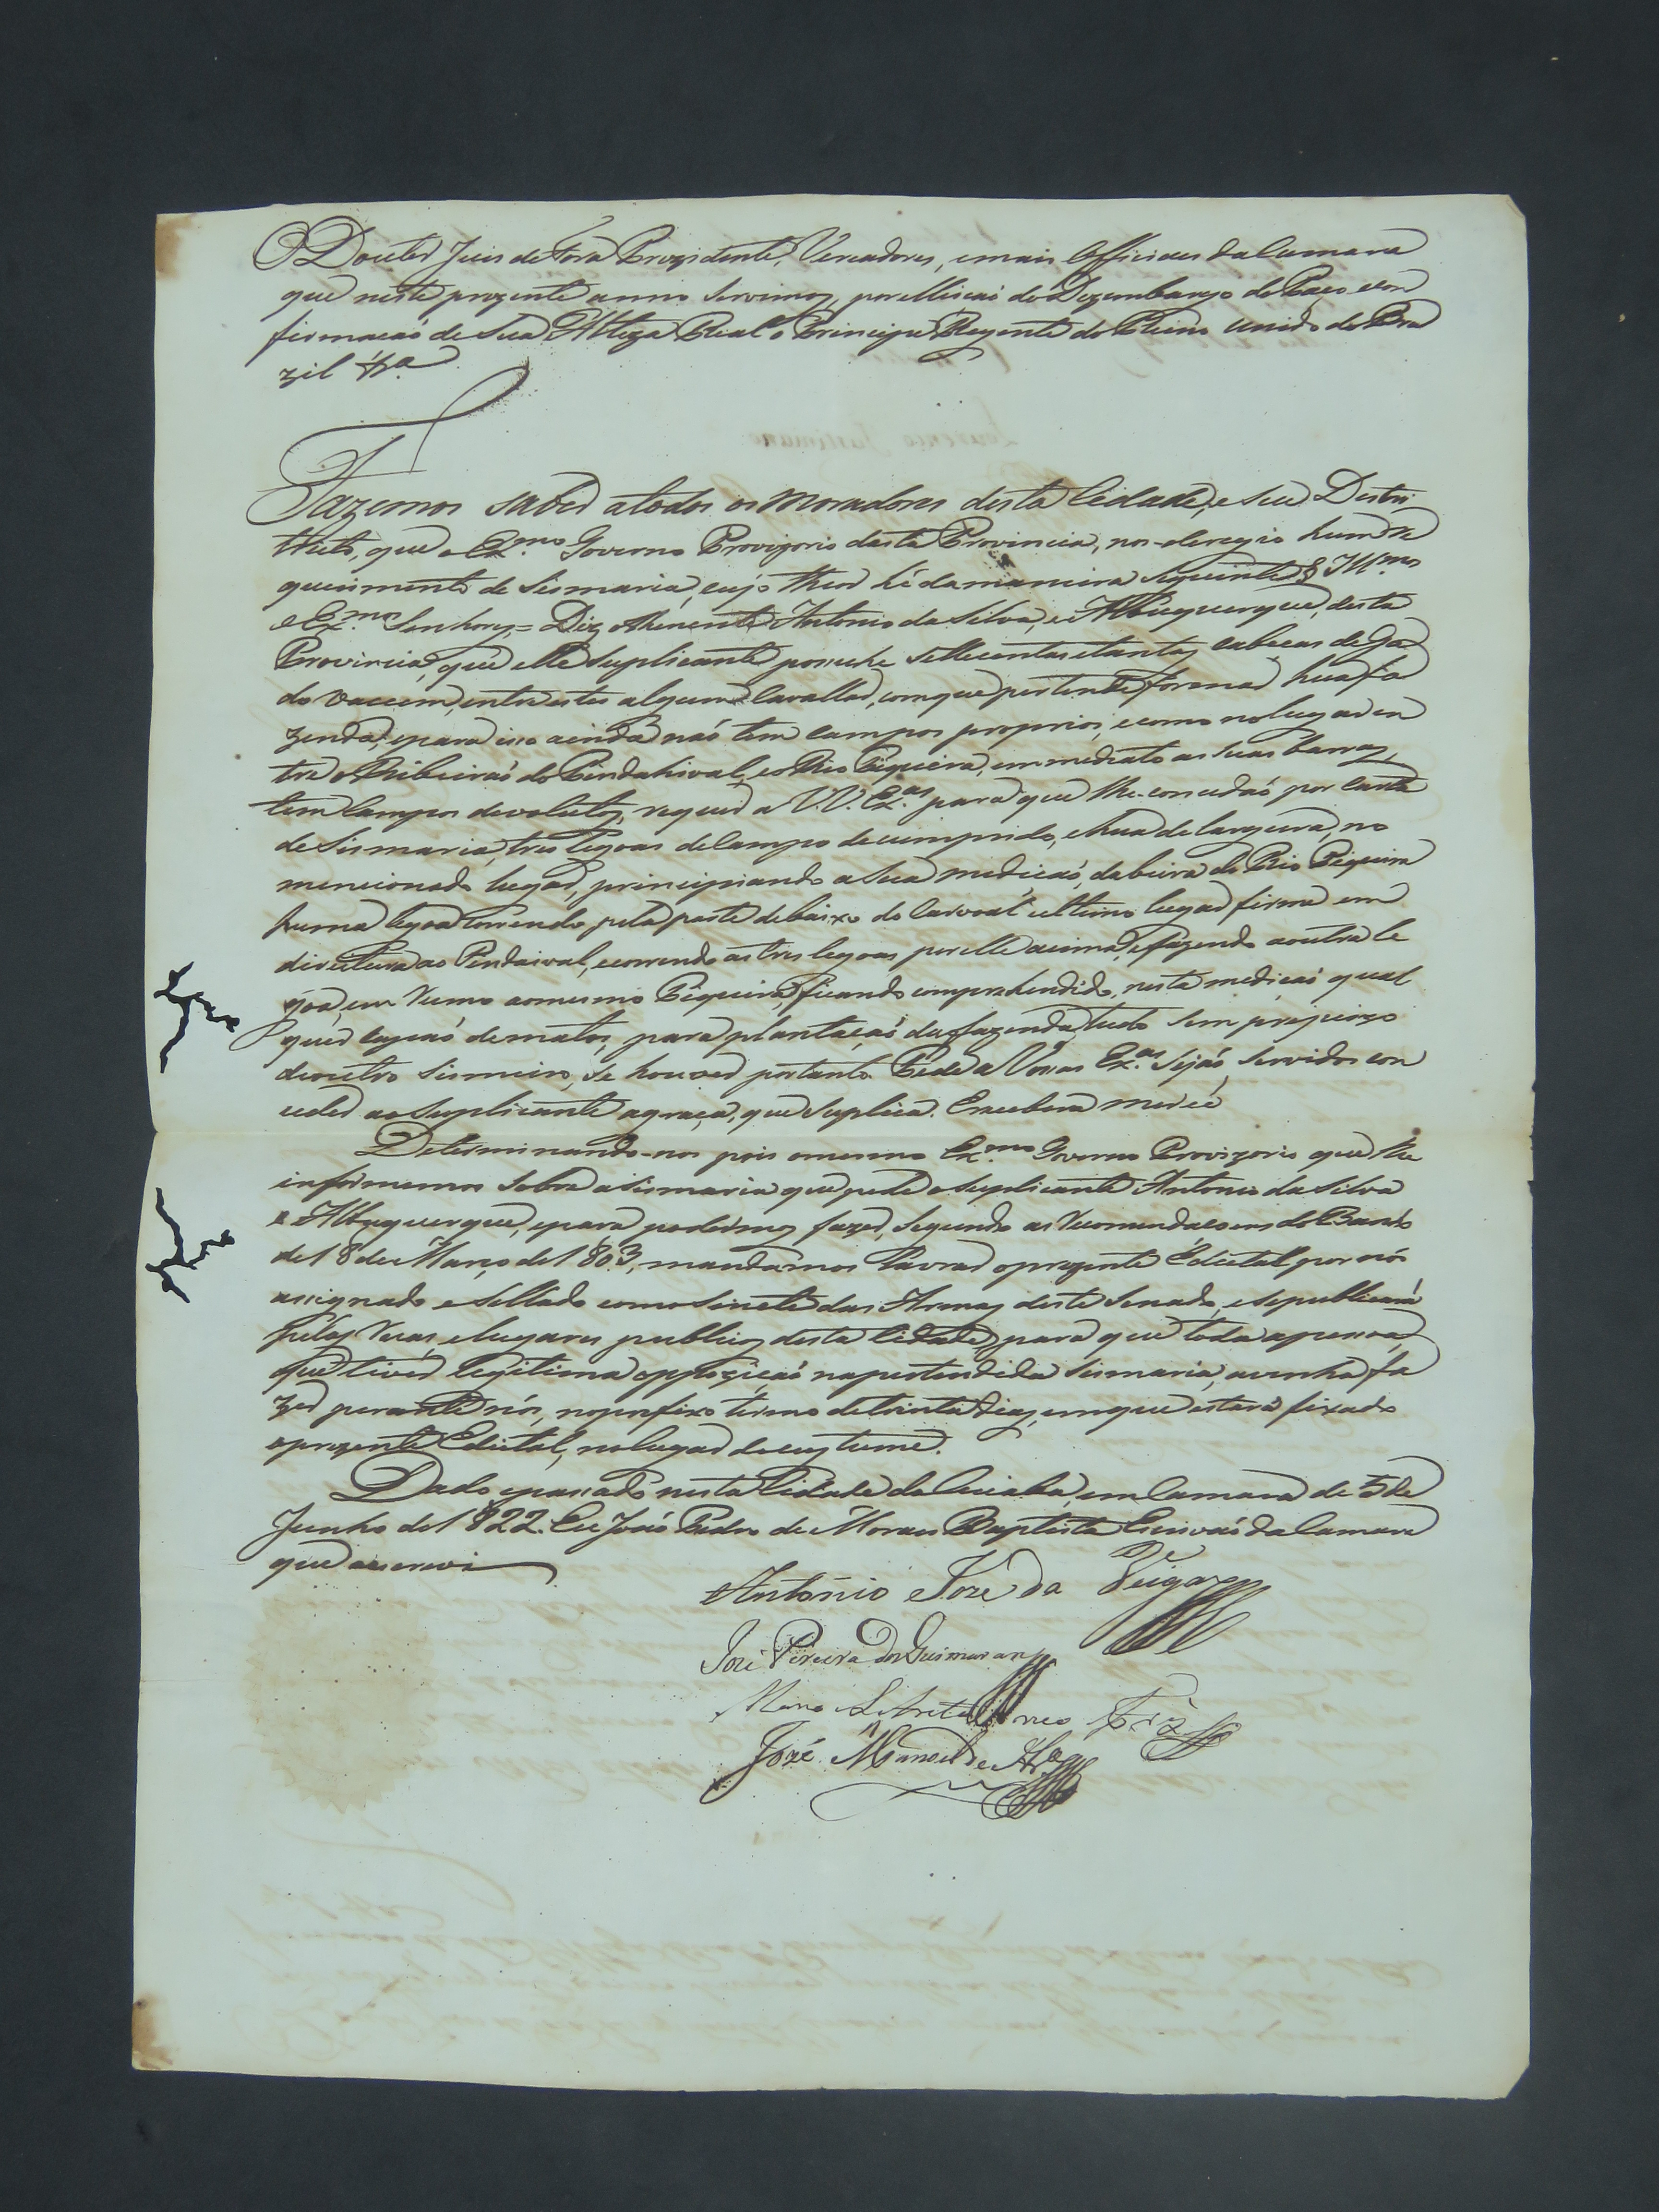 O Doutor Juis de Fora Prezidente, Vereadores, e mais Officiaes da Camara
que neste prezente anno servimos, por elleicaó do Dezembargo do Paço e con
firmacaó de Sua Alteza Real o Principe Regente do Reino Unido do Bra
zil &.ª
Fazemos saber a todos os Moradores desta Cidade, e seu Destri
tricto, que o Ex.mo Governo Provizorio desta Provincia, nos deregio hum re
querimento de Sismaria, cujo theor hé da maneira seguinte § Ill.mos
e Ex.mos Senhores = Diz o Thenente Antonio da Silva, e Albuquerque, desta
Provincia, que elle Suplicante possuhe settecentas e tantas cabecas de Ga
do vaccum, entre estes algum cavallar, com que pertende formar huã fa
zenda, e para isso ainda naó tem campos proprios, e como no lugar en
tre o Ribeiraó do Pindahival, e o Rio Piqueira, emmediato as suas barras,
tem campos devolutos, requer a V.V. Ex.as para que lhe concedaó por carta
de Sismaria, tres legoas de campo de cumprido, e hua de largura, no
mencionado lugar, principiando a sua medicaó, da beira do Rio Piqueira
huma legoa correndo pela parte debaixo do ultimo lugar firme em
direitura ao Pindaival, e correndo as tres legoas por elle acima, e fazendo a outra le
goa, em rumo ao mesmo Piqueira, ficando comprehendido, nesta medicaó qual
quer capaó de matos, para plantacaó da fazenda, tudo sem prejuizo
de outro Sismeiro, se houver portanto Pede a Vossas Ex.as Sejaó Servidos con
ceder ao Suplicante a graca, que Suplica. E recebera mercê
Determinando-nos pois o mesmo Ex.mo Governo Provizorio que lhe
informemos sobre a sismaria que pede o Suplicante Antonio da Silva
e Albuquerque, e para podermos fazer, segundo as recomendacoens do Bando
de 18 de Março de 1803, mandamos lavrar o prezente Edictal por nós
assignado e sellado com o Sinete das Armas deste Senado, e se publicará
pelas ruas, e lugares publicos desta Cidade, para que toda a pessoa,
que tiver legitima oppozicaó na pertendida sismaria, a venha fa
zer perante nós, no prefixo termo de trinta dias, em que estará fixado
o prezente Edictal, no lugar do custume.
Dado e passado nesta Cidade do Cuiaba, em Camara de 5 de
Junho de 1822. Eu Joaó Pedro de Moraes Baptista Escrivaó da Camara
que o escrevi
Antonio Joze da Veiga
Joze Pereira dos Guimaraens
Joze Manoel de